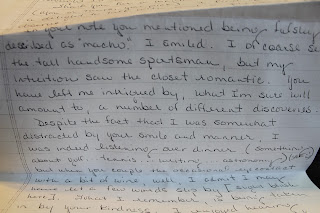 your note you mentioned being falsely
described as "macho". I smiled. I of course se
the tall handsome sportsman, but my
intuition saw the closet romantic. You
have left me intrigued by, what I'm sure will
amount to, a number of different discoveries.
Despite the fact that I was somewhat
distracted by your smile and manner, I
was indeed listening over dinner (something
about golf, tennis, writing, astronomy)
but when you caught the
with a bit of wine will
a few words slip by
here]. What I remember is being
by your kindness. I